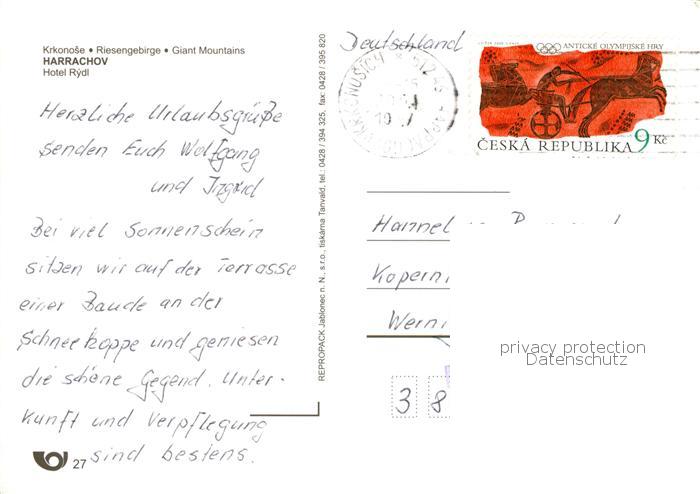 Krkonoše • Riesengebirge • Giant Mountains
HARRACHOV
Hotel Rýdl
Herzliche Urlaubsgrüße
senden Euch Wolfgang
und Ingrid
Bei viel Sonnenschein
sitzen wir auf der Terrasse
einer Baude an der
Schneekoppe und geniesen
die schöne Gegend. Unter-
kunft und Verpflegung
sind bestens.
27
REPROPACK Jablonec n. N., s.r.o., tiskárna Tanvald, tel.: 0428 / 394 325, fax: 0428 / 395 820
Deutschland
ANTICKÉ OLYMPIJSKÉ HRY
ČESKÁ REPUBLIKA 9 Kč
Hannel
Koperni
Werni
3 8
privacy protection
Datenschutz